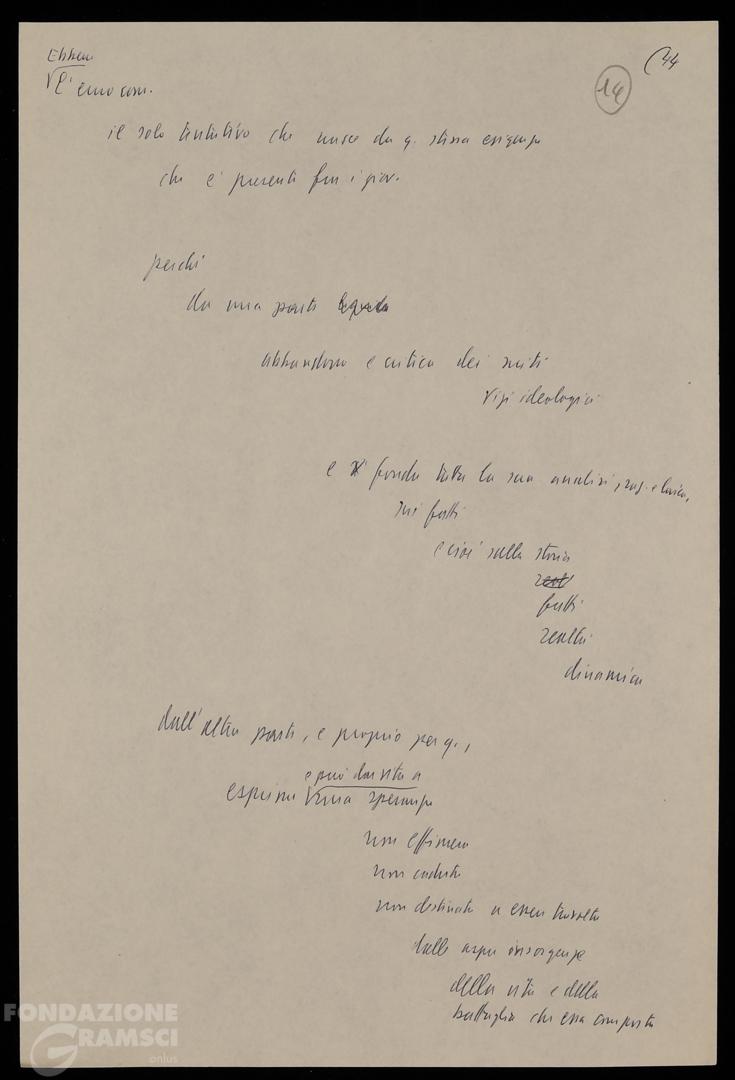 Ebbene
l'eurocom.
14
44
il solo tentativo che nasce da q. stessa esigenza
che è presente fra i giov.
perché
da una parte
abbandono e critica dei miti
vizi ideologici
e fonda tutta la sua analisi, e
sui fatti
e cioè sulla storia
fatti
realtà
dinamica
dall'altra parte, e proprio per q.,
e può dar vita a
esprime una speranza
non effimera
non caduca
non destinata a essere travolta
dalle aspre insorgenze
della vita e della
battaglia che essa comporta
FONDAZIONE
GRAMSCI
onlus